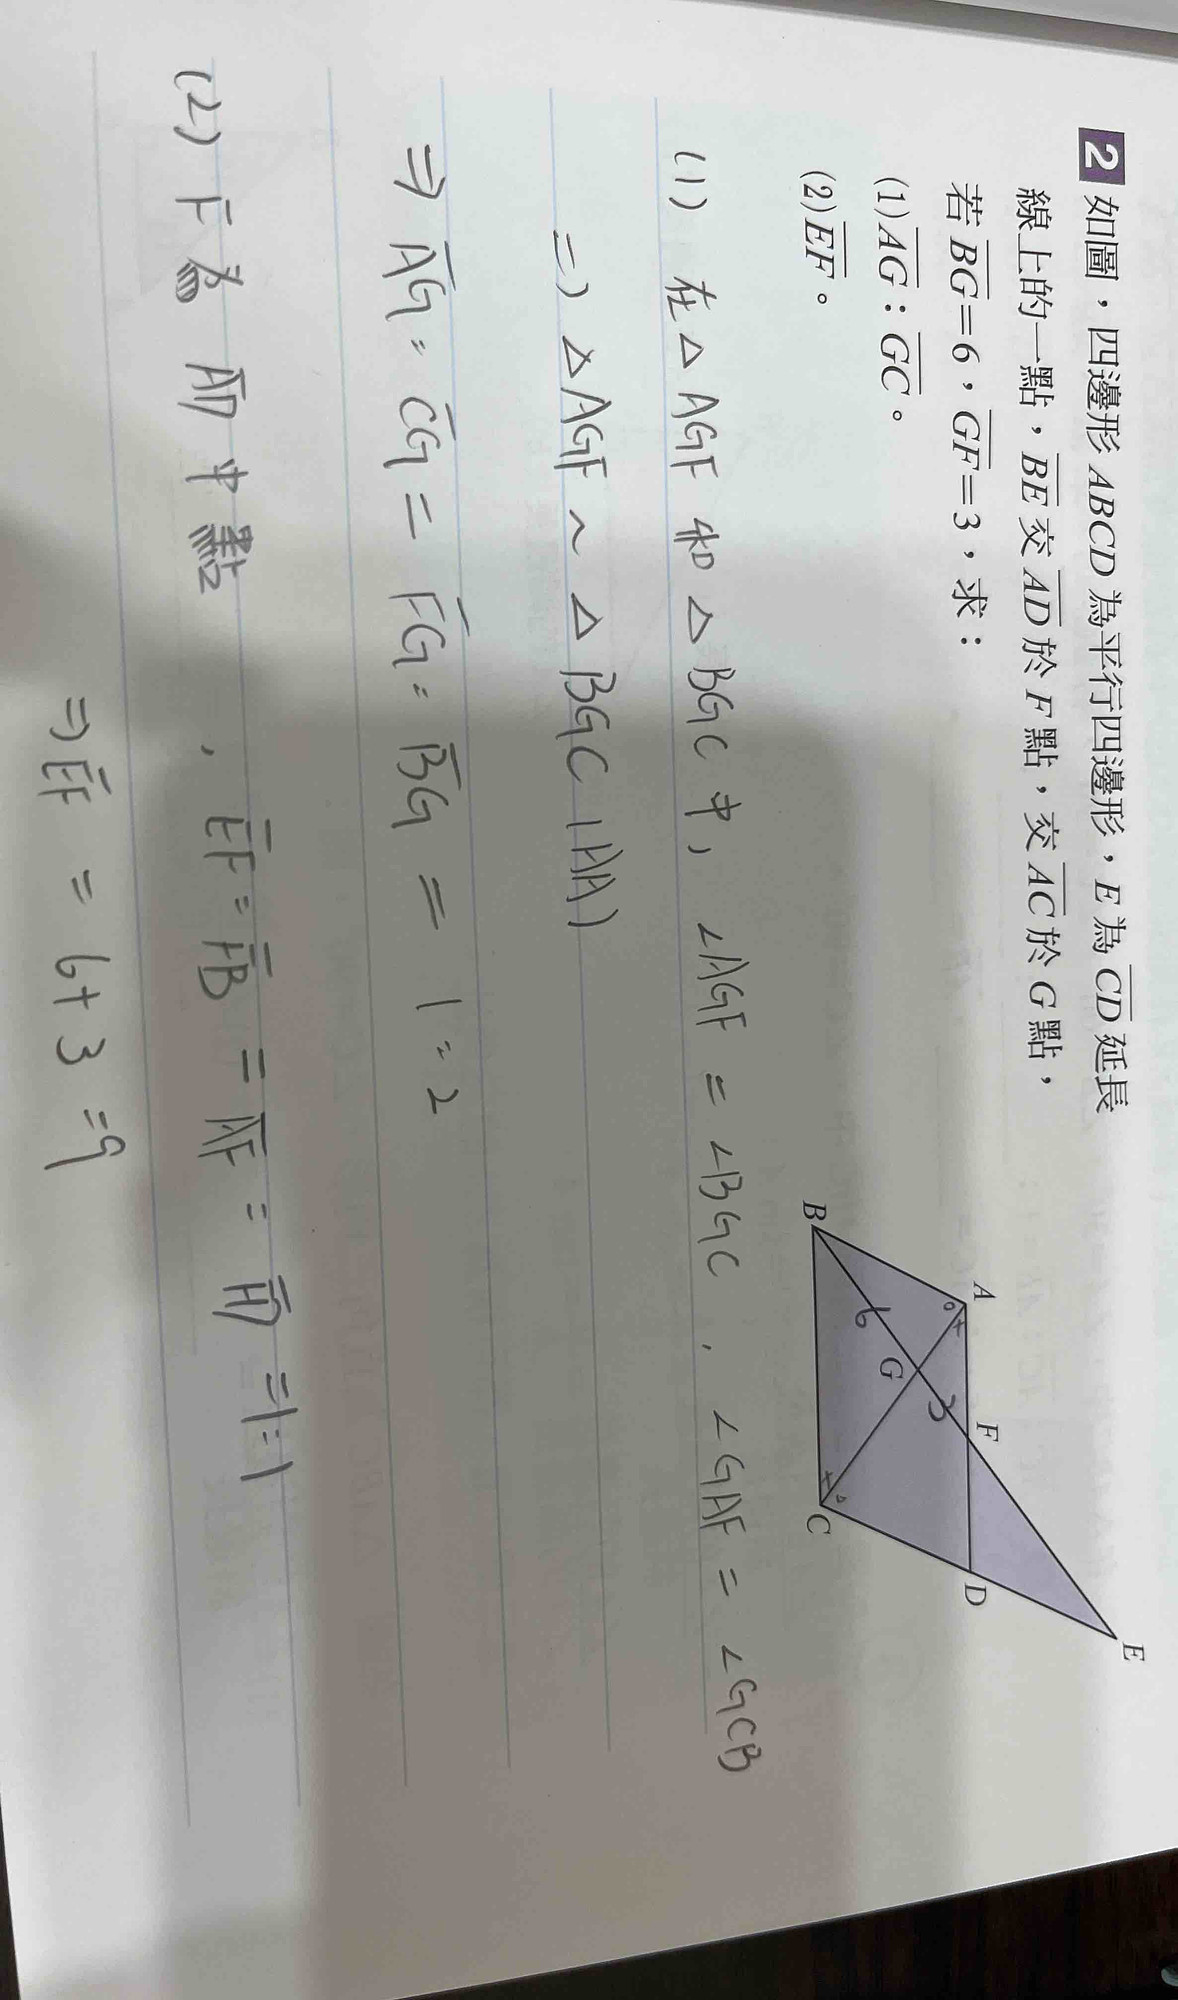 2 如圖，四邊形 ABCD 為平行四邊形，E 為 CD 延長
線上的一點，BE 交 AD 於 F 點，交 AC 於 G 點，
若 BG=6，GF=3，求：
(1) AG：GC。
(2) EF。
A
F
D
E
B
G
C
6
3
(1) 在△AGF 和△BGC 中，∠AGF = ∠BGC，∠GAF = ∠GCB
⇒ △AGF ~ △BGC (AA)
⇒ AG : CG = FG : BG = 1 : 2
(2) F 為 AD 中點，EF : FB = AF : FD = 1 : 1
⇒ EF = 6+3 = 9